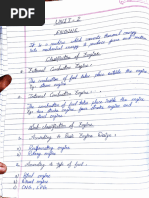 UNIT-I
ENGINE
It is a machine which converts thermal energy
into mechanical energy to produce force and motion
Classification of Engine
External Combustion Engine
The combustion of fuel takes place outside the engine
Eg:- steam engine
Internal Combustion Engine:-
The combustion of fuel takes place inside the engine
Eg:- two stroke engine, four stroke engine and
diesel engine
Classification of Engine:-
According to Basic Engine Design:-
Reciprocating engine
Rotary engine
According to type of fuel:-
Petrol engine
Diesel engine
CNG, LPG